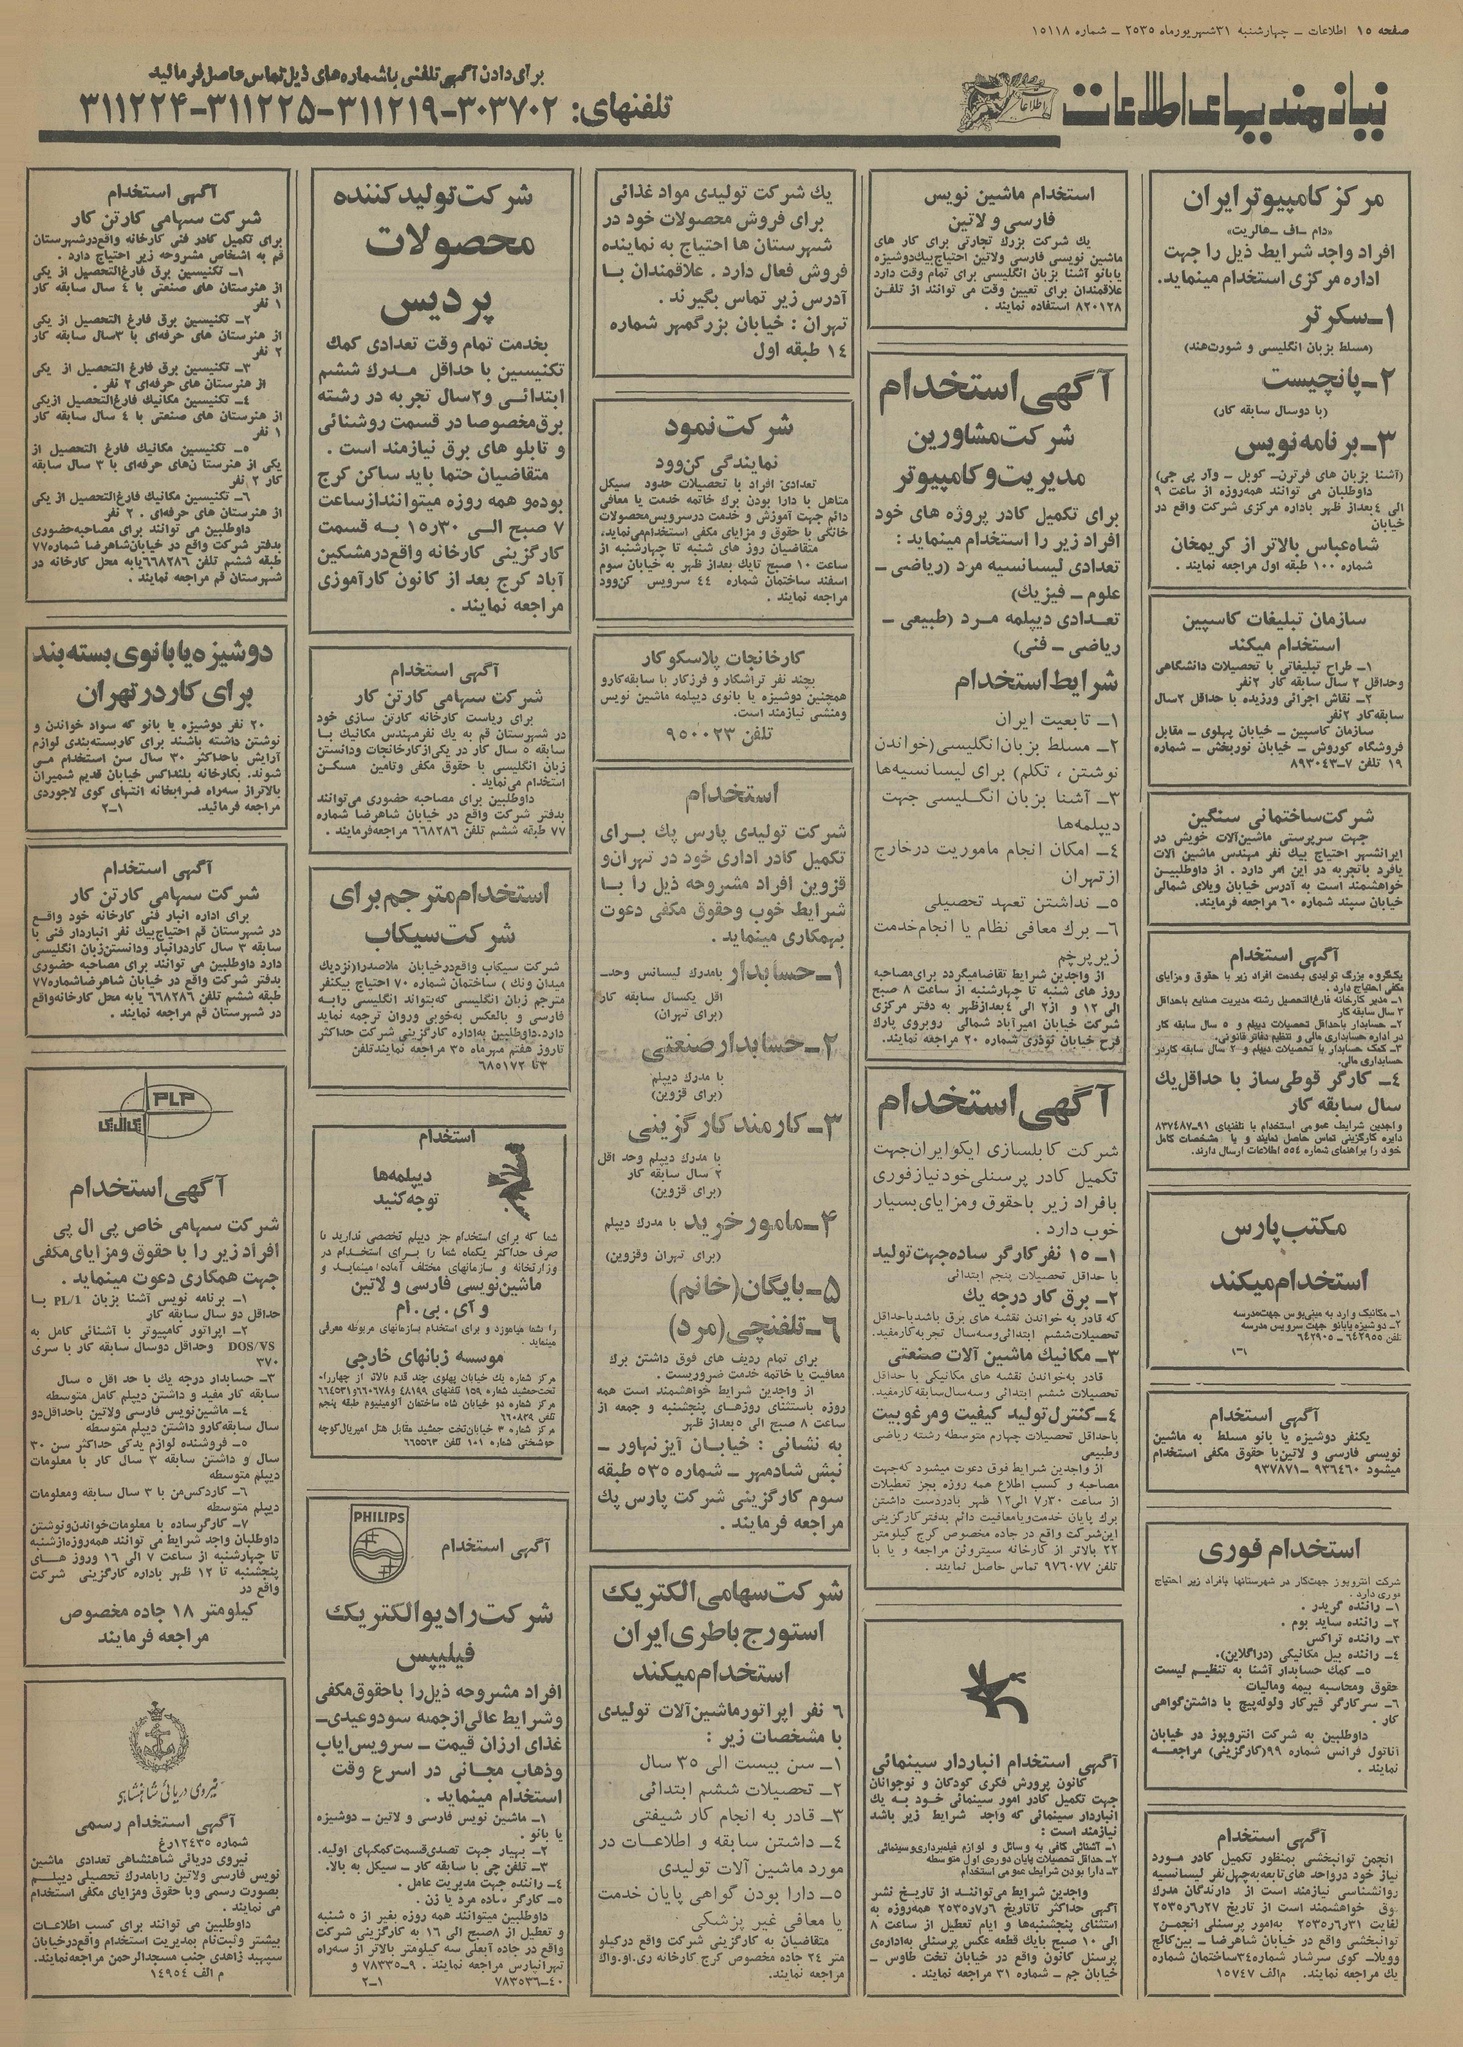 صفحه ۱۵ اطلاعات ـ چهارشنبه ۳۱ شهریورماه ۲۵۳۵ ـ شماره ۱۵۱۱۸
نیازمندیهای اطلاعات
برای دادن آگهی تلفنی با شماره‌های ذیل تماس حاصل فرمائید
تلفنهای: ۳۰۳۷۰۲-۳۱۱۲۱۹-۳۱۱۲۲۵-۳۱۱۲۲۴
مرکز کامپیوتر ایران
افراد واجد شرایط ذیل را جهت
اداره مرکزی استخدام مینماید.
۱ـ سکرتر
(مسلط بزبان انگلیسی و شورت‌هند)
۲ـ پانچیست
(با دوسال سابقه کار)
۳ـ برنامه نویس
(آشنا بزبان های فرترن ـ کوبل ـ وآر پی جی)
داوطلبان می توانند همه‌روزه از ساعت ۹
الی ۴ بعداز ظهر باداره مرکزی شرکت واقع در
خیابان
شاه‌عباس بالاتر از کریمخان
شماره ۱۰۰ طبقه اول مراجعه نمایند.
سازمان تبلیغات کاسپین
استخدام میکند
۱ـ طراح تبلیغاتی با تحصیلات دانشگاهی
وحداقل ۲ سال سابقه کار ۲نفر
۲ـ نقاش اجرائی ورزیده با حداقل ۲سال
سابقه‌کار ۲نفر
سازمان کاسپین ـ خیابان پهلوی ـ مقابل
فروشگاه کوروش ـ خیابان نوربخش ـ شماره
۱۹ تلفن ۷ـ۸۹۳۰۴۳
شرکت ساختمانی سنگین
جهت سرپرستی ماشین‌آلات خویش در
ایرانشهر احتیاج بیك نفر مهندس ماشین آلات
یافرد باتجربه در این امر دارد . از داوطلبین
خواهشمند است به آدرس خیابان ویلای شمالی
خیابان سپند شماره ۶۰ مراجعه فرمایند.
آگهی استخدام
یکگروه بزرگ تولیدی بخدمت افراد زیر با حقوق و مزایای
مکفی احتیاج دارد .
۱ـ مدیر کارخانه فارغ‌التحصیل رشته مدیریت صنایع باحداقل
۳ سال سابقه کار
۲ـ حسابدار باحداقل تحصیلات دیپلم و ۵ سال سابقه کار
در اداره حسابداری مالی و تنظیم دفاتر قانونی.
۳ـ کمک حسابدار با تحصیلات دیپلم و ۲ سال سابقه کاردر
حسابداری مالی.
۴ـ کارگر قوطی‌ساز با حداقل یك
سال سابقه کار
واجدین شرایط عمومی استخدام با تلفنهای ۹۱ـ۸۳۷۴۸۷
دایره کارگزینی تماس حاصل نمایند و یا مشخصات کامل
خود را براهنمای شماره ۵۵۴ اطلاعات ارسال دارند.
مکتب پارس
استخدام میکند
۱ـ مکانیک وارد به مینی‌بوس جهت‌مدرسه
۲ـ دوشیزه یابانو جهت سرویس مدرسه
تلفن ۶۴۲۹۵۵ ـ ۶۴۲۹۰۵
آگهی استخدام
یکنفر دوشیزه یا بانو مسلط به ماشین
نویسی فارسی و لاتین با حقوق مکفی استخدام
میشود ۹۳۶۴۶۰ ـ ۹۳۷۸۷۱
استخدام فوری
شرکت انتروبوز جهت‌کار در شهرستانها بافراد زیر احتیاج
فوری دارد.
۱ـ راننده گریدر .
۲ـ راننده ساید بوم .
۳ـ راننده تراکس
۴ـ راننده بیل مکانیکی (دراگلاین).
۵ـ کمك حسابدار آشنا به تنظیم لیست
حقوق ومحاسبه بیمه ومالیات
۶ـ سرکارگر قیرکار ولوله‌پیچ با داشتن‌گواهی
کار .
داوطلبین به شرکت انتروپوز در خیابان
آناتول فرانس شماره ۹۹(کارگزینی) مراجعه
نمایند .
آگهی استخدام
انجمن توانبخشی بمنظور تکمیل کادر مورد
نیاز خود درواحد های‌تابعه‌به‌چهل‌نفر لیسانسیه
روانشناسی نیازمند است از دارندگان مدرک
فوق خواهشمند است از تاریخ ۲۵۳۵ر۶ر۲۷
لغایت ۲۵۳۵ر۶ر۳۱ به‌امور پرسنلی انجمن
توانبخشی واقع در خیابان شاهرضا ـ بین‌کالج
وویلا ـ کوی سرشار شماره۳۴ساختمان شماره
یك مراجعه نمایند. م‌الف ۱۵۷۴۷
استخدام ماشین نویس
فارسی و لاتین
یك شرکت بزرك تجارتی برای کار های
ماشین نویسی فارسی ولاتین احتیاج‌بیك‌دوشیزه
یابانو آشنا بزبان انگلیسی برای تمام وقت دارد
علاقمندان برای تعیین وقت می توانند از تلفن
۸۲۰۱۲۸ استفاده نمایند .
آگهی استخدام
شرکت مشاورین
مدیریت و کامپیوتر
برای تکمیل کادر پروژه های خود
افراد زیر را استخدام مینماید :
تعدادی لیسانسیه مرد (ریاضی ـ
علوم ـ فیزیك)
تعدادی دیپلمه مرد (طبیعی ـ
ریاضی ـ فنی)
شرایط استخدام
۱ـ تابعیت ایران
۲ـ مسلط بزبان‌انگلیسی (خواندن
نوشتن ، تکلم) برای لیسانسیه‌ها
۳ـ آشنا بزبان انگلیسی جهت
دیپلمه‌ها
۴ـ امکان انجام ماموریت درخارج
ازتهران
۵ـ نداشتن تعهد تحصیلی
۶ـ برك معافی نظام یا انجام‌خدمت
زیر پرچم
از واجدین شرایط تقاضامیگردد برای‌مصاحبه
روز های شنبه تا چهارشنبه از ساعت ۸ صبح
الی ۱۲ و از۲ الی ۴بعدازظهر به دفتر مرکزی
شرکت خیابان امیرآباد شمالی روبروی پارك
فرح خیابان نوذری شماره ۲۰ مراجعه نمایند.
آگهی استخدام
شرکت کابلسازی ایکو ایران جهت
تکمیل کادر پرسنلی خود نیاز فوری
بافراد زیر باحقوق ومزایای بسیار
خوب دارد .
۱ـ ۱۵ نفر کارگر ساده جهت تولید
با حداقل تحصیلات پنجم ابتدائی
۲ـ برق کار درجه یك
که قادر به خواندن نقشه های برق باشند باحداقل
تحصیلات‌ششم ابتدائی وسه‌سال تجربه‌کارمفید.
۳ـ مکانیك ماشین آلات صنعتی
قادر به‌خواندن نقشه های مکانیکی با حداقل
تحصیلات ششم ابتدائی وسه‌سال‌سابقه‌کارمفید.
۴ـ کنترل تولید کیفیت و مرغوبیت
باحداقل تحصیلات چهارم متوسطه رشته ریاضی
وطبیعی
از واجدین شرایط فوق دعوت میشود که‌جهت
مصاحبه و کسب اطلاع همه روزه بجز تعطیلات
از ساعت ۷ر۳۰ الی۱۲ ظهر بادردست داشتن
برك پایان خدمت‌ویامعافیت دائم بدفترکارگزینی
این‌شرکت واقع در جاده مخصوص کرج کیلومتر
۲۲ بالاتر از کارخانه سیتروئن مراجعه و یا با
تلفن ۹۷۶۰۷۷ تماس حاصل نمایند .
آگهی استخدام انباردار سینمائی
کانون پرورش فکری کودکان و نوجوانان
جهت تکمیل کادر امور سینمائی خود به یك
انباردار سینمائی که واجد شرایط زیر باشد
نیازمند است :
۱ـ آشنائی کافی به وسائل و لوازم فیلمبرداری‌وسینمائی
۲ـ حداقل تحصیلات پایان دوره‌ی اول متوسطه
۳ـ دارا بودن شرایط عمومی استخدام
واجدین شرایط می‌توانند از تاریخ نشر
آگهی حداکثر تاتاریخ ۲۵۳۵ر۷ر۶ همه‌روزه به
استثنای پنجشنبه‌ها و ایام تعطیل از ساعت ۸
الی ۱۰ صبح بایك قطعه عکس پرسنلی به‌اداره‌ی
پرسنل کانون واقع در خیابان تخت طاوس ـ
خیابان جم ـ شماره ۳۱ مراجعه نمایند .
یك شرکت تولیدی مواد غذائی
برای فروش محصولات خود در
شهرستان ها احتیاج به نماینده
فروش فعال دارد . علاقمندان با
آدرس زیر تماس بگیرند .
تهران : خیابان بزرگمهر شماره
۱۴ طبقه اول
شرکت نمود
نمایندگی کن‌وود
تعدادی افراد با تحصیلات حدود سیکل
متاهل با دارا بودن برك خاتمه خدمت یا معافی
دائم جهت آموزش و خدمت درسرویس‌محصولات
خانگی با حقوق و مزایای مکفی استخدام‌می‌نماید،
متقاضیان روز های شنبه تا چهارشنبه از
ساعت ۱۰ صبح تایك بعداز ظهر به خیابان سوم
اسفند ساختمان شماره ۴۴ سرویس کن‌وود
مراجعه نمایند .
کارخانجات پلاسکوکار
بچند نفر تراشکار و فرزکار با سابقه‌کارو
همچنین دوشیزه یا بانوی دیپلمه ماشین نویس
ومنشی نیازمند است.
تلفن ۹۵۰۰۲۳
استخدام
شرکت تولیدی پارس پك برای
تکمیل کادر اداری خود در تهران‌و
قزوین افراد مشروحه ذیل را با
شرایط خوب وحقوق مکفی دعوت
بهمکاری مینماید .
۱ـ حسابدار بامدرك لیسانس وحد ـ
اقل یکسال سابقه کار
(برای تهران)
۲ـ حسابدار صنعتی
با مدرك دیپلم
(برای قزوین)
۳ـ کارمند کارگزینی
با مدرك دیپلم وحد اقل
۲ سال سابقه کار
(برای قزوین)
۴ـ مامور خرید با مدرك دیپلم
(برای تهران وقزوین)
۵ـ بایگان (خانم)
۶ـ تلفنچی (مرد)
برای تمام ردیف های فوق داشتن برك
معافیت یا خاتمه خدمت ضروریست .
از واجدین شرایط خواهشمند است همه
روزه باستثنای روزهای پنجشنبه و جمعه از
ساعت ۸ صبح الی ۵بعداز ظهر
به نشانی : خیابان آیزنهاور ـ
نبش شادمهر ـ شماره ۵۳۵ طبقه
سوم کارگزینی شرکت پارس پك
مراجعه فرمایند .
شرکت سهامی الکتریك
استورج باطری ایران
استخدام میکند
۶ نفر اپراتور ماشین‌آلات تولیدی
با مشخصات زیر :
۱ـ سن بیست الی ۳۵ سال
۲ـ تحصیلات ششم ابتدائی
۳ـ قادر به انجام کار شیفتی
۴ـ داشتن سابقه و اطلاعات در
مورد ماشین آلات تولیدی
۵ـ دارا بودن گواهی پایان خدمت
یا معافی غیر پزشکی
متقاضیان به کارگزینی شرکت واقع درکیلو
متر ۲۴ جاده مخصوص کرج کارخانه ری.او.واك
مراجعه نمایند.
شرکت تولیدکننده
محصولات
پردیس
بخدمت تمام وقت تعدادی کمك
تکنیسین با حداقل مدرك ششم
ابتدائی و۲سال تجربه در رشته
برق‌مخصوصا در قسمت روشنائی
و تابلو های برق نیازمند است .
متقاضیان حتما باید ساکن کرج
بوده‌و همه روزه میتوانندازساعت
۷ صبح الی ۳۰ر۱۵ به قسمت
کارگزینی کارخانه واقع‌درمشکین
آباد کرج بعد از کانون کارآموزی
مراجعه نمایند .
آگهی استخدام
شرکت سهامی کارتن کار
برای ریاست کارخانه کارتن سازی خود
در شهرستان قم به یك نفرمهندس مکانیك با
سابقه ۵ سال کار در یکی‌ازکارخانجات ودانستن
زبان انگلیسی با حقوق مکفی وتامین مسکن
استخدام می‌نماید .
داوطلبین برای مصاحبه حضوری می‌توانند
بدفتر شرکت واقع در خیابان شاهرضا شماره
۷۷ طبقه ششم تلفن ۶۶۸۲۸۶ مراجعه‌فرمایند .
استخدام مترجم برای
شرکت سیکاب
شرکت سیکاب واقع‌درخیابان ملاصدرا(نزدیك
میدان ونك ) ساختمان شماره ۷۰ احتیاج بیکنفر
مترجم زبان انگلیسی که‌بتواند انگلیسی رابه
فارسی و بالعکس به‌خوبی وروان ترجمه نماید
دارد.داوطلبین به‌اداره کارگزینی شرکت حداکثر
تاروز هفتم مهرماه ۳۵ مراجعه نمایندتلفن
۳تا ۶۸۵۱۷۲
استخدام
دیپلمه‌ها
توجه کنید
شما که برای استخدام جز دیپلم تخصصی ندارید با
صرف حداکثر یکماه شما را برای استخدام در
وزارتخانه و سازمانهای مختلف آماده مینماید و
ماشین‌نویسی فارسی و لاتین
و آی . بی . ام
را بشما میآموزد و برای استخدام بسازمانهای مربوطه معرفی
مینماید .
موسسه زبانهای خارجی
مرکز شماره یك خیابان پهلوی چند قدم بالاتر از چهارراه
تخت‌جمشید شماره ۱۵۹ تلفنهای ۴۸۱۹۹و۶۶۰۶۷۸و۶۶۴۵۳۱
مرکز شماره دو خیابان شاه ساختمان آلومینیوم طبقه پنجم
تلفن ۶۶۰۸۲۹
مرکز شماره ۳ خیابان‌تخت جمشید مقابل هتل امپریال‌کوچه
خوشبختی شماره ۱۰۱ تلفن ۶۶۵۵۶۳
PHILIPS
آگهی استخدام
شرکت رادیو الکتریك
فیلیپس
افراد مشروحه ذیل را با حقوق مکفی
وشرایط عالی ازجمله سودوعیدی ـ
غذای ارزان قیمت ـ سرویس‌ایاب
وذهاب مجانی در اسرع وقت
استخدام مینماید .
۱ـ ماشین نویس فارسی و لاتین ـ دوشیزه
یا بانو .
۲ـ بهیار جهت تصدی‌قسمت‌کمکهای اولیه.
۳ـ تلفن چی با سابقه کار ـ سیکل به بالا.
۴ـ راننده جهت مدیریت عامل .
۵ـ کارگر ساده مرد یا زن .
داوطلبین میتوانند همه روزه بغیر از ۵ شنبه
و تعطیل از ۸صبح الی ۱۶ به کارگزینی شرکت
واقع در جاده آبعلی سه کیلومتر بالاتر از سه‌راه
تهرانپارس مراجعه نمایند . ۹ـ۷۸۳۳۵ و
۴۰ـ۷۸۳۵۳۶ ۱ـ۲
آگهی استخدام
شرکت سهامی کارتن کار
برای تکمیل کادر فنی کارخانه واقع‌درشهرستان
قم به اشخاص مشروحه زیر احتیاج دارد .
۱ـ تکنیسین برق فارغ‌التحصیل از یکی
از هنرستان های صنعتی با ۴ سال سابقه کار
۱ نفر
۲ـ تکنیسین برق فارغ التحصیل از یکی
از هنرستان های حرفه‌ای با ۳سال سابقه کار
۲ نفر
۳ـ تکنیسین برق فارغ التحصیل از یکی
از هنرستان های حرفه‌ای ۲ نفر .
۴ـ تکنیسین مکانیك فارغ‌التحصیل ازیکی
از هنرستان های صنعتی با ۴ سال سابقه کار
۱ نفر
۵ـ تکنیسین مکانیك فارغ التحصیل از
یکی از هنرستا ن‌های حرفه‌ای با ۳ سال سابقه
کار ۲ نفر
۶ـ تکنیسین مکانیك فارغ‌التحصیل از یکی
از هنرستان های حرفه‌ای . ۲ نفر
داوطلبین می توانند برای مصاحبه‌حضوری
بدفتر شرکت واقع در خیابان‌شاهرضا شماره۷۷
طبقه ششم تلفن ۶۶۸۲۸۶یابه محل کارخانه در
شهرستان قم مراجعه نمایند .
دوشیزه یا بانوی بسته بند
برای کار در تهران
۲۰ نفر دوشیزه یا بانو که سواد خواندن و
نوشتن داشته باشند برای کاربسته‌بندی لوازم
آرایش باحداکثر ۳۰ سال سن استخدام می
شوند. بکارخانه بلنداکس خیابان قدیم شمیران
بالاتراز سه‌راه ضرابخانه انتهای کوی لاجوردی
مراجعه فرمائید. ۱ـ۲
آگهی استخدام
شرکت سهامی کارتن کار
برای اداره انبار فنی کارخانه خود واقع
در شهرستان قم احتیاج‌بیك نفر انباردار فنی با
سابقه ۳ سال کاردرانبار ودانستن‌زبان انگلیسی
دارد داوطلبین می توانند برای مصاحبه حضوری
بدفتر شرکت واقع در خیابان شاهرضاشماره۷۷
طبقه ششم تلفن ۶۶۸۲۸۶ یابه محل کارخانه‌واقع
در شهرستان قم مراجعه نمایند .
PLP
پی ال پی
آگهی استخدام
شرکت سهامی خاص پی ال پی
افراد زیر را با حقوق ومزایای مکفی
جهت همکاری دعوت مینماید .
۱ـ برنامه نویس آشنا بزبان PL/1 با
حداقل دو سال سابقه کار
۲ـ اپراتور کامپیوتر با آشنائی کامل به
DOS/VS وحداقل دوسال سابقه کار با سری
۳۷۰
۳ـ حسابدار درجه یك با حد اقل ۵ سال
سابقه کار مفید و داشتن دیپلم کامل متوسطه
۴ـ ماشین‌نویس فارسی ولاتین باحداقل‌دو
سال سابقه‌کارو داشتن دیپلم متوسطه
۵ـ فروشنده لوازم یدکی حداکثر سن ۳۰
سال و داشتن سابقه ۳ سال کار با معلومات
دیپلم متوسطه
۶ـ کاردکس‌من با ۳ سال سابقه ومعلومات
دیپلم متوسطه
۷ـ کارگرساده با معلومات‌خواندن‌ونوشتن
داوطلبان واجد شرایط می توانند همه‌روزه‌ازشنبه
تا چهارشنبه از ساعت ۷ الی ۱۶ وروز های
پنجشنبه تا ۱۲ ظهر باداره کارگزینی شرکت
واقع در
کیلومتر ۱۸ جاده مخصوص
مراجعه فرمایند
نیروی دریائی شاهنشاهی
آگهی استخدام رسمی
شماره ۱۲۴۳۵رغ
نیروی دریائی شاهنشاهی تعدادی ماشین
نویس فارسی ولاتین رابامدرك تحصیلی دیپلم
بصورت رسمی وباحقوق ومزایای مکفی استخدام
می نمایند .
داوطلبین می توانند برای کسب اطلاعات
بیشتر وثبت‌نام بمدیریت استخدام واقع‌درخیابان
سپهبد زاهدی جنب مسجدالرحمن مراجعه‌نمایند.
م الف ۱۴۹۵۴